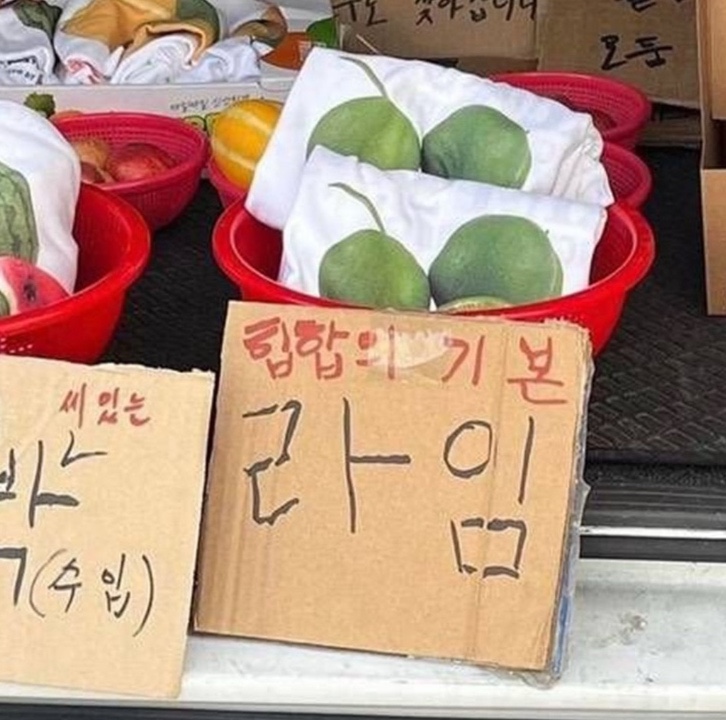 찾아갑니다
모둠
힙합의 기본
라임
씨 있는
박
(수입)